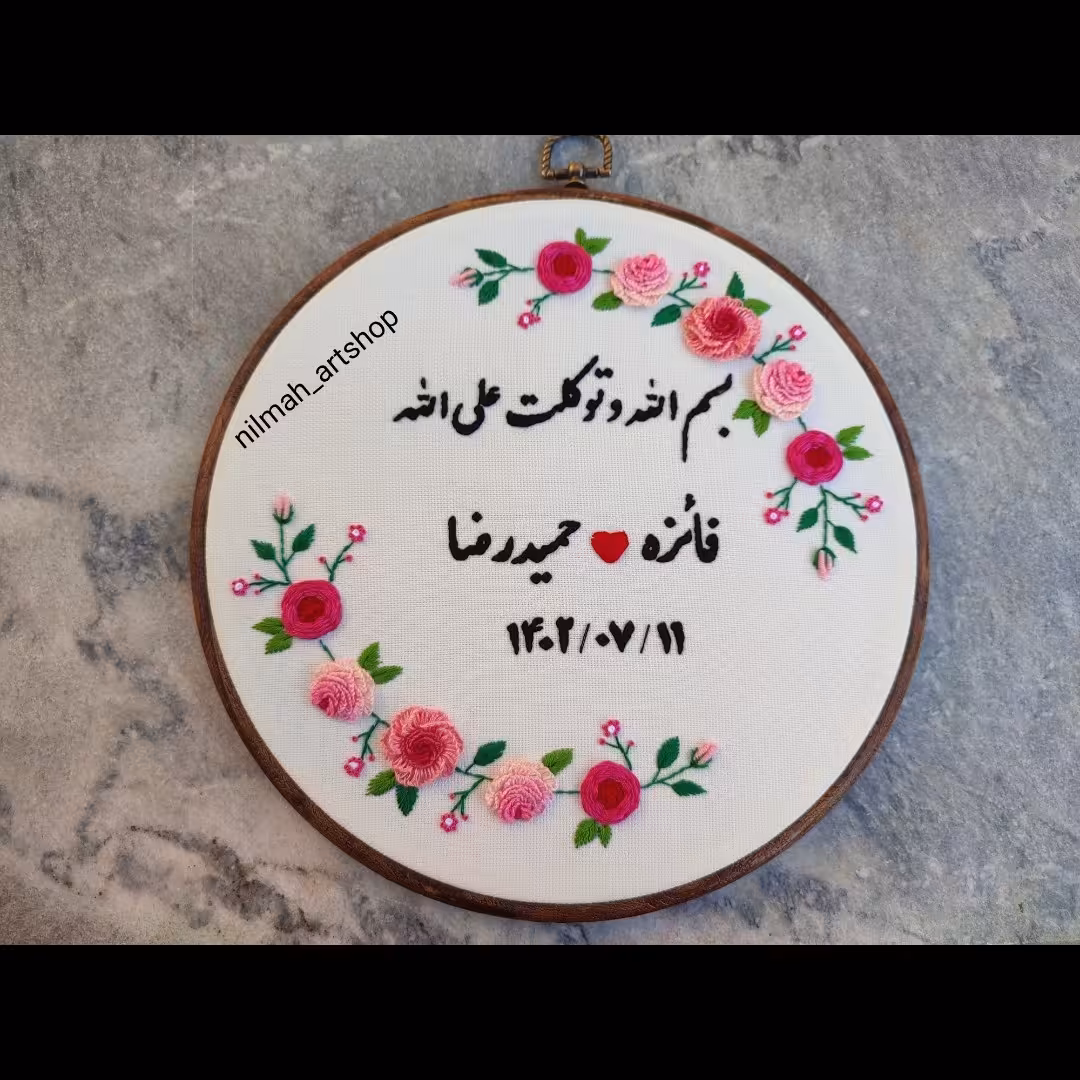 nilmah_artshop
بسم الله و توکلت علی الله
فائزه ❤ حمیدرضا
۱۴۰۲/۰۷/۱۱